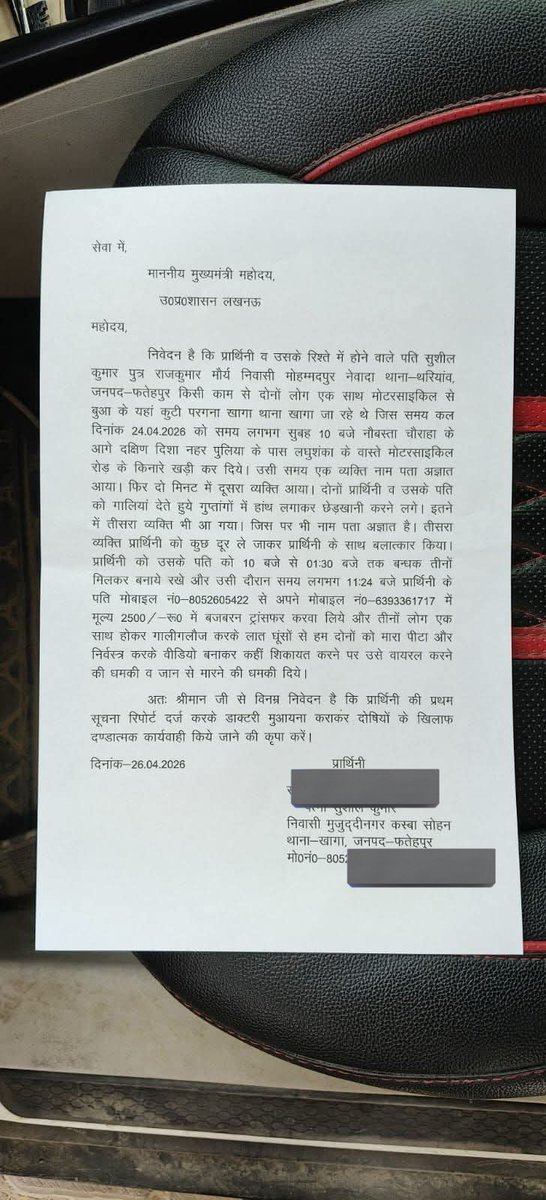 सेवा में,
माननीय मुख्यमंत्री महोदय,
उ0प्र0शासन लखनऊ
महोदय,
निवेदन है कि प्रार्थिनी व उसके रिश्ते में होने वाले पति सुशील
कुमार पुत्र राजकुमार मौर्य निवासी मोहम्मदपुर नेवादा थाना–थरियांव,
जनपद–फतेहपुर किसी काम से दोनों लोग एक साथ मोटरसाइकिल से
बुआ के यहां कुटी परगना खागा थाना खागा जा रहे थे जिस समय कल
दिनांक 24.04.2026 को समय लगभग सुबह 10 बजे नौबस्ता चौराहा के
आगे दक्षिण दिशा नहर पुलिया के पास लघुशंका के वास्ते मोटरसाइकिल
रोड़ के किनारे खड़ी कर दिये। उसी समय एक व्यक्ति नाम पता अज्ञात
आया। फिर दो मिनट में दूसरा व्यक्ति आया। दोनों प्रार्थिनी व उसके पति
को गालियां देते हुये गुप्तांगों में हांथ लगाकर छेड़खानी करने लगे। इतने
में तीसरा व्यक्ति भी आ गया। जिस पर भी नाम पता अज्ञात है। तीसरा
व्यक्ति प्रार्थिनी को कुछ दूर ले जाकर प्रार्थिनी के साथ बलात्कार किया।
प्रार्थिनी को उसके पति को 10 बजे से 01:30 बजे तक बन्धक तीनों
मिलकर बनाये रखे और उसी दौरान समय लगभग 11:24 बजे प्रार्थिनी के
पति मोबाइल नं0–8052605422 से अपने मोबाइल नं0–6393361717 में
मूल्य 2500/–रू0 में बजबरन ट्रांसफर करवा लिये और तीनों लोग एक
साथ होकर गालीगलौज करके लात घूंसों से हम दोनों को मारा पीटा और
निर्वस्त्र करके वीडियो बनाकर कहीं शिकायत करने पर उसे वायरल करने
की धमकी व जान से मारने की धमकी दिये।
अतः श्रीमान जी से विनम्र निवेदन है कि प्रार्थिनी की प्रथम
सूचना रिपोर्ट दर्ज करके डाक्टरी मुआयना कराकर दोषियों के खिलाफ
दण्डात्मक कार्यवाही किये जाने की कृपा करें।
दिनांक–26.04.2026 प्रार्थिनी
सुशील कुमार
निवासी मुजुद्दीनगर कस्बा सोहन
थाना–खागा, जनपद–फतेहपुर
मो0नं0–8052